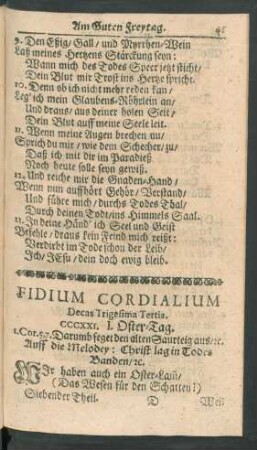 Am Guten Freytag.
9. Den Eßig/ Gall/ und Myrrhen-Wein
Laß meines Hertzens Stärckung seyn:
Wann mich des Todes Speer jetzt sticht/
Dein Blut mir Trost ins Hertze spricht.
10. Denn ob ich nicht mehr reden kan/
Leg' ich mein Glaubens-Röhrlein an/
Und draus/ aus deiner holen Seit/
Dein Blut auff meine Seele leit.
11. Wenn meine Augen brechen nu/
Sprich du mir/ wie dem Schecher/ zu/
Daß ich mit dir im Paradieß
Noch heute solle seyn gewiß.
12. Und reiche mir die Gnaden-Hand/
Wenn nun auffhört Gehör/ Verstand/
Und führe mich/ durchs Todes Thal/
Durch deinen Todt/ ins Himmels Saal.
13. In deine Händ' ich Seel und Geist
Befehle/ draus kein Feind mich reißt:
Verdirbt im Tode schon der Leib/
Ich/ JEsu/ dein doch ewig bleib.
FIDIUM CORDIALIUM
Decas Trigesima Tertia.
CCCXXI. I. Oster-Tag.
1. Cor. 5.7. Darumb feget den alten Saurteig aus/ ꝛc.
Auff die Melodey: Christ lag in Todes
Banden/ ꝛc.
WIr haben auch ein Oster-Lam/
(Das Wesen für den Schatten!)
Siebender Theil. D Weil